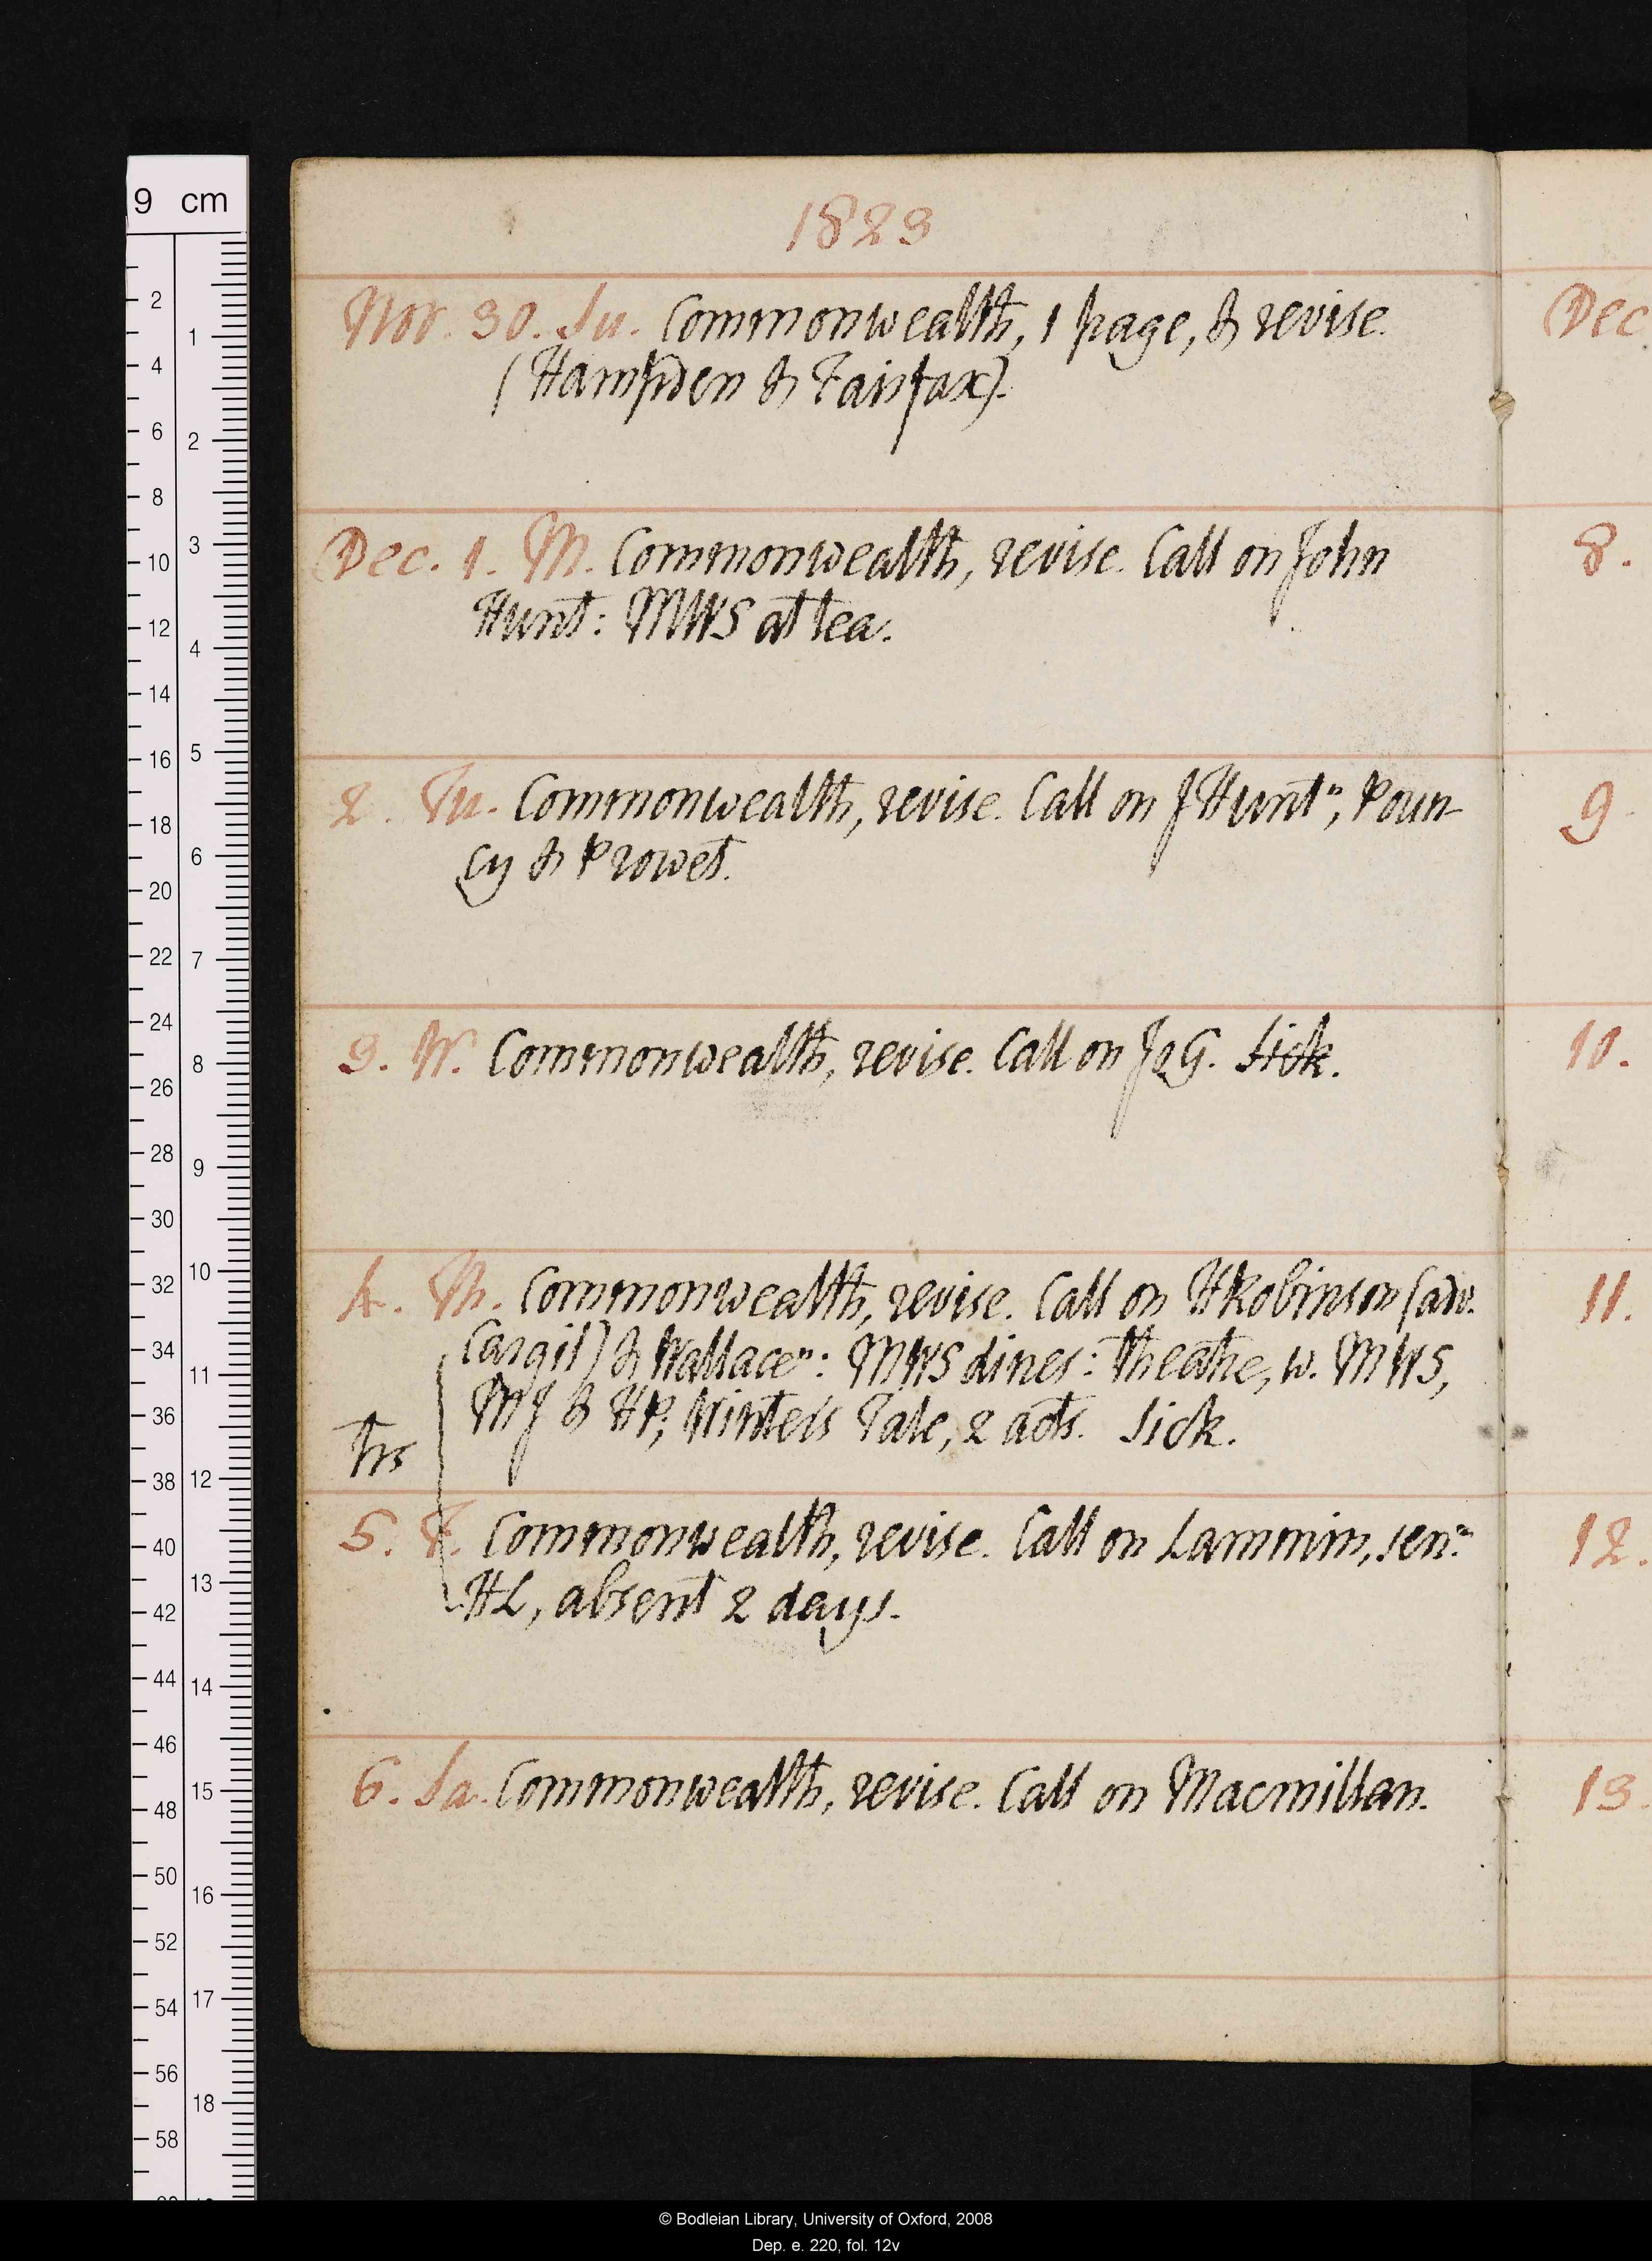 1823
Nov. 30. Su. Commonwealth, 1 page, & revise.
(Hampden & Fairfax).
Dec. 1. M. Commonwealth, revise. Call on John
Hunt: MWS at tea.
2. Tu. Commonwealth, revise. Call on J Hunt n, Poun-
cy & Prowet.
3. W. Commonwealth, revise. Call on JoG. Sick.
4. Th. Commonwealth, revise. Call on HRobinson (adv.
Cargil) & Wallace n: MWS dines: theatre, w. MWS,
MJ & HP; Winter's Tale, 2 acts. Sick.
Trs
5. F. Commonwealth, revise. Call on Lammin, senr.
HL, absent 2 days.
6. Sa. Commonwealth, revise. Call on Macmillan.
Dec
8.
9.
10.
11.
12.
13.
9 cm
2
4
6
8
10
12
14
16
18
20
22
24
26
28
30
32
34
36
38
40
42
44
46
48
50
52
54
56
58
1
2
3
4
5
6
7
8
9
10
11
12
13
14
15
16
17
18
© Bodleian Library, University of Oxford, 2008
Dep. e. 220, fol. 12v